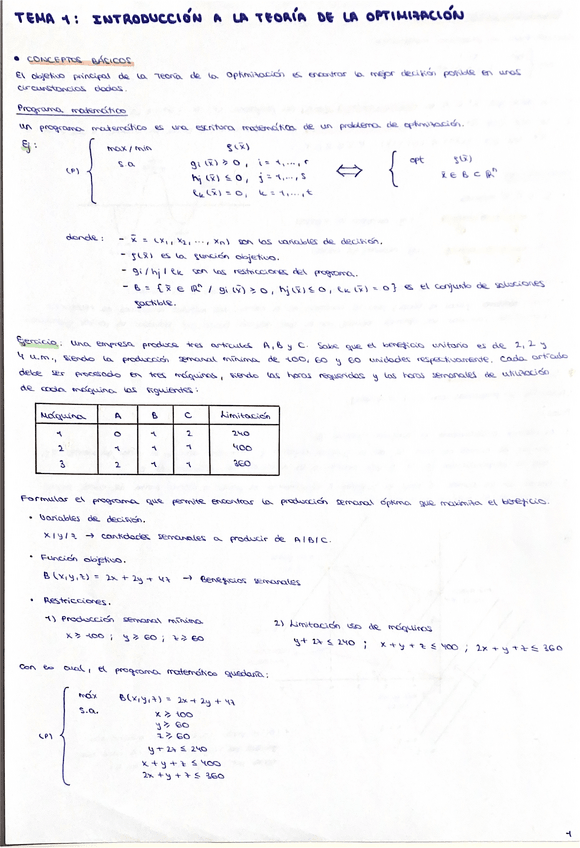 TEMA 1: INTRODUCCIÓN A LA TEORÍA DE LA OPTIMIZACIÓN
• CONCEPTOS BÁSICOS
El objetivo principal de la Teoría de la Optimización es encontrar la mejor decisión posible en unas
circunstancias dadas.
Programa matemático
Un programa matemático es una escritura matemática de un problema de optimización.
Ej:
(P) { max/min f(x̄)
s.a. gi(x̄) ≥ 0, i = 1,..., r
hj(x̄) ≤ 0, j = 1,..., s
lk(x̄) = 0, k = 1,..., t
⟺ { opt f(x̄)
x̄ ∈ B ⊂ ℝⁿ
donde: - x̄ = (x₁, x₂, ..., xn) son las variables de decisión.
- f(x̄) es la función objetivo.
- gi/hj/lk son las restricciones del programa.
- B = {x̄ ∈ ℝⁿ / gi(x̄) ≥ 0, hj(x̄) ≤ 0, lk(x̄) = 0} es el conjunto de soluciones
factible.
Ejercicio: Una empresa produce tres artículos A, B y C. Sabe que el beneficio unitario es de 2, 2 y
4 u.m., siendo la producción semanal mínima de 100, 60 y 60 unidades respectivamente. Cada artículo
debe ser procesado en tres máquinas, siendo las horas requeridas y las horas semanales de utilización
de cada máquina las siguientes:
Máquina A B C Limitación
1 0 1 2 240
2 1 1 1 400
3 2 1 1 360
Formular el programa que permite encontrar la producción semanal óptima que maximiza el beneficio.
• Variables de decisión.
x/y/z → cantidades semanales a producir de A/B/C.
• Función objetivo.
B(x,y,z) = 2x + 2y + 4z → Beneficios semanales
• Restricciones.
1) Producción semanal mínima
x ≥ 100 ; y ≥ 60 ; z ≥ 60
2) Limitación uso de máquinas
y + 2z ≤ 240 ; x + y + z ≤ 400 ; 2x + y + z ≤ 360
Con lo cual, el programa matemático quedaría:
(P) { máx B(x,y,z) = 2x + 2y + 4z
s.a. x ≥ 100
y ≥ 60
z ≥ 60
y + 2z ≤ 240
x + y + z ≤ 400
2x + y + z ≤ 360
1